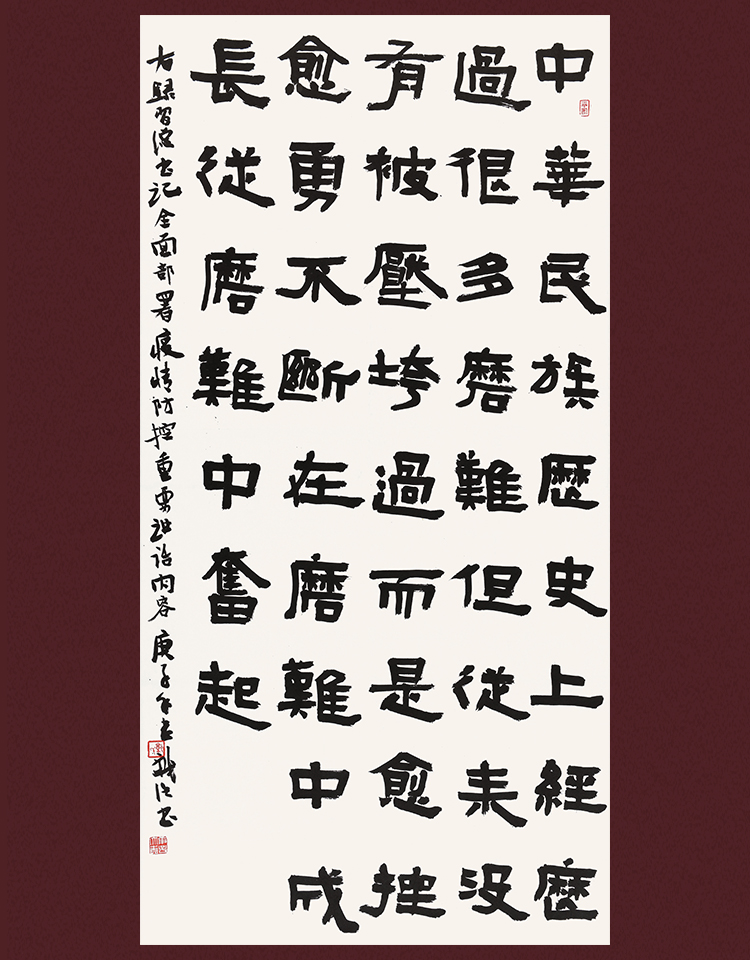 中華民族歷史上經歷
過很多磨難但從来没
有被壓垮過而是愈挫
愈勇不斷在磨難中成
長從磨難中奮起
右録習總书记全面部署疫情防控重要讲话内容庚子年书